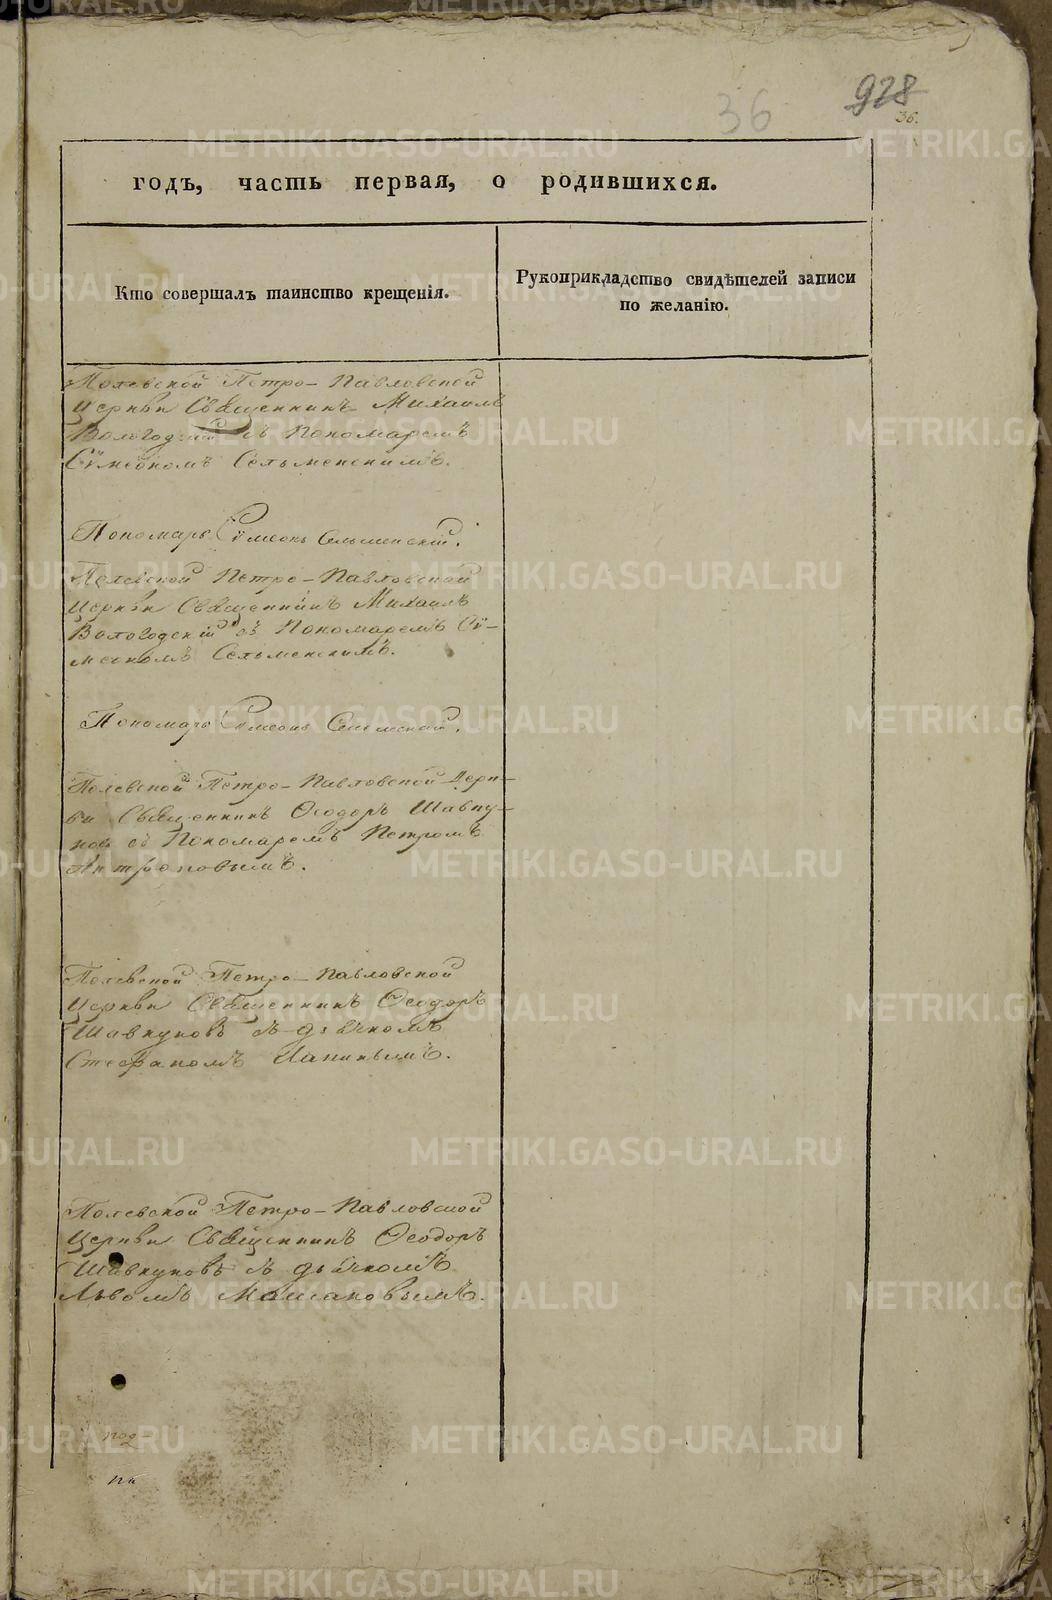 928
36
36.
годъ, часть первая, о родившихся.
Кто совершалъ таинство крещенія.
Рукоприкладство свидѣтелей записи
по желанію.
Полевской Петро-Павловской
Церкви Священникъ Михаилъ
Вологодскій съ Пономаремъ
Сѵмеономъ Сельменскимъ.
Пономарь Сѵмеонъ Сельменскій.
Полевской Петро-Павловской
Церкви Священникъ Михаилъ
Вологодскій съ Пономаремъ Сѵ-
меономъ Сельменскимъ.
Пономарь Сѵмеонъ Сельменскій.
Полевской Петро-Павловской Церк-
ви Священникъ Ѳеодоръ Шавку-
новъ съ Пономаремъ Петромъ
Антроповымъ.
Полевской Петро-Павловской
Церкви Священникъ Ѳеодоръ
Шавкуновъ съ дьячкомъ
Стефаномъ
Полевской Петро-Павловской
Церкви Священникъ Ѳеодоръ
Шавкуновъ съ дьячкомъ
Львомъ
METRIKI.GASO-URAL.RU